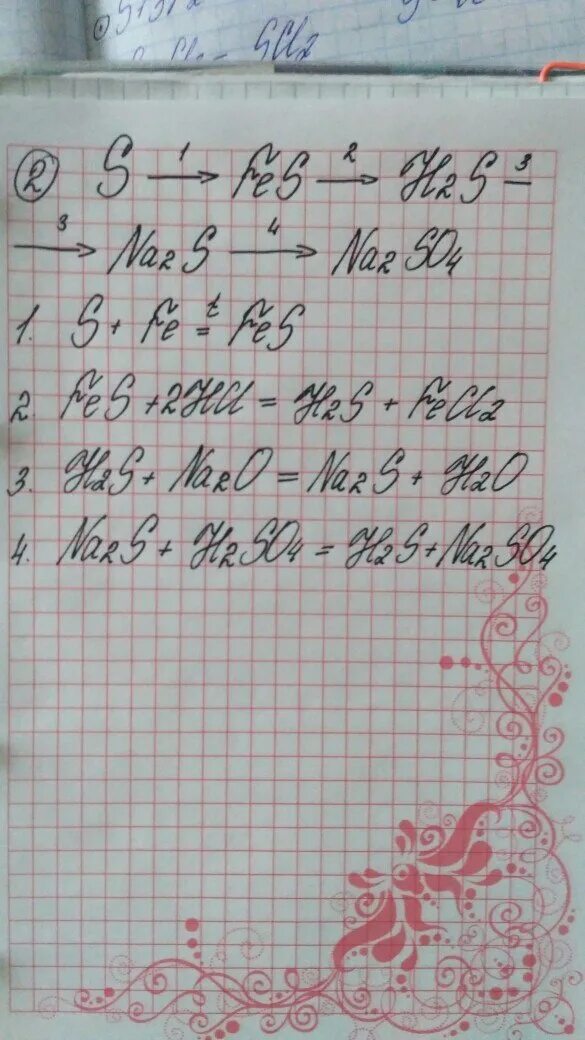 SCl2
② S 1→ FeS 2→ H2S 3—
3→ Na2S 4→ Na2SO4
1. S + Fe t= FeS
2. FeS + 2HCl = H2S + FeCl2
3. H2S + Na2O = Na2S + H2O
4. Na2S + H2SO4 = H2S + Na2SO4